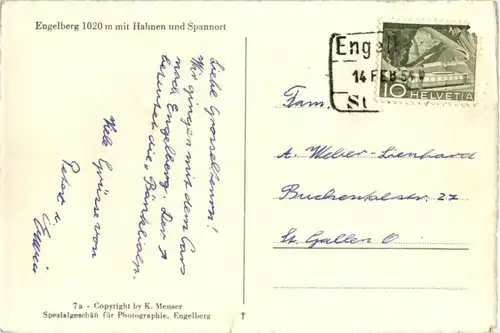 Engelberg 1020 m mit Hahnen und Spannort
Liebe Grosseltern!
Wir gingen mit dem Cars
nach Engelberg. Der ↑
bedeutet die „Bänklialp.
Viele Grüsse von
Peter u.
Erwin
7a - Copyright by K. Meuser
Spezialgeschäft für Photographie, Engelberg
7
Engelb
14 FEB 54
St
10 HELVETIA
Fam.
A. Weber-Lienhard
Buchentalstr. 27
St. Gallen O